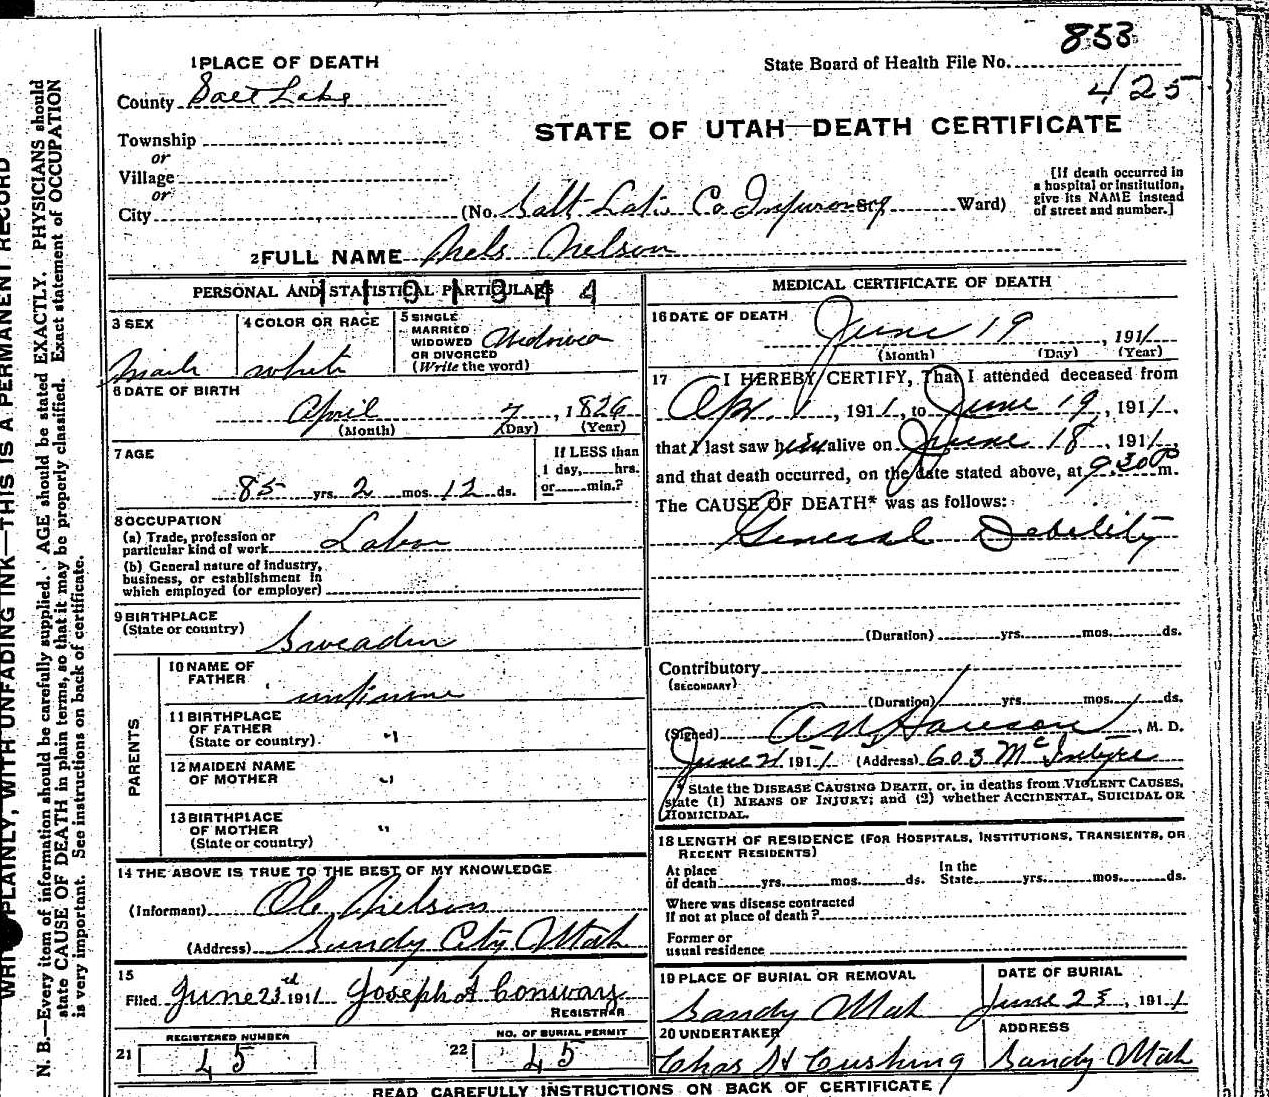 853
1 PLACE OF DEATH
State Board of Health File No.
425
County Salt Lake
STATE OF UTAH—DEATH CERTIFICATE
Township
or
Village
or
City (No. Salt Lake Co Infirmary St; Ward)
[If death occurred in
a hospital or institution,
give its NAME instead
of street and number.]
2 FULL NAME Nels Nelson
PERSONAL AND STATISTICAL PARTICULARS
3 SEX
Male
4 COLOR OR RACE
white
5 SINGLE
MARRIED
WIDOWED
OR DIVORCED
(Write the word)
Widower
6 DATE OF BIRTH
April 7, 1826
(Month) (Day) (Year)
7 AGE
85 yrs. 2 mos. 12 ds.
If LESS than
1 day, hrs.
or min.?
8 OCCUPATION
(a) Trade, profession or
particular kind of work Labor
(b) General nature of industry,
business, or establishment in
which employed (or employer)
9 BIRTHPLACE
(State or country)
Sweaden
PARENTS
10 NAME OF
FATHER
11 BIRTHPLACE
OF FATHER
(State or country) "
12 MAIDEN NAME
OF MOTHER "
13 BIRTHPLACE
OF MOTHER
(State or country) "
14 THE ABOVE IS TRUE TO THE BEST OF MY KNOWLEDGE
(Informant) Ole Nielson
(Address) Sandy City Utah
15
Filed June 23rd 1911 Joseph A Conway
REGISTRAR
REGISTERED NUMBER
21 45
NO. OF BURIAL PERMIT
22 45
MEDICAL CERTIFICATE OF DEATH
16 DATE OF DEATH
June 19, 1911
(Month) (Day) (Year)
17 I HEREBY CERTIFY, That I attended deceased from
Apr 1, 1911, to June 19, 1911,
that I last saw him alive on June 18, 1911,
and that death occurred, on the date stated above, at 9.30 P m.
The CAUSE OF DEATH* was as follows:
General Debility
(Duration) yrs. mos. ds.
Contributory
(SECONDARY)
(Duration) yrs. mos. ds.
(Signed) M. D.
June 21 1911 (Address) 603 McIntyre
* State the DISEASE CAUSING DEATH, or, in deaths from VIOLENT CAUSES,
state (1) MEANS OF INJURY; and (2) whether ACCIDENTAL, SUICIDAL OR
HOMICIDAL.
18 LENGTH OF RESIDENCE (FOR HOSPITALS, INSTITUTIONS, TRANSIENTS, OR
RECENT RESIDENTS)
At place
of death yrs. mos. ds.
In the
State yrs. mos. ds.
Where was disease contracted
If not at place of death?
Former or
usual residence
19 PLACE OF BURIAL OR REMOVAL
Sandy Utah
DATE OF BURIAL
June 23, 1911
20 UNDERTAKER
Chas H Cushing
ADDRESS
Sandy Utah
READ CAREFULLY INSTRUCTIONS ON BACK OF CERTIFICATE
PLAINLY, WITH UNFADING INK—THIS IS A PERMANENT RECORD
N. B.—Every item of information should be carefully supplied. AGE should be stated EXACTLY. PHYSICIANS should
state CAUSE OF DEATH in plain terms, so that it may be properly classified. Exact statement of OCCUPATION
is very important. See instructions on back of certificate.